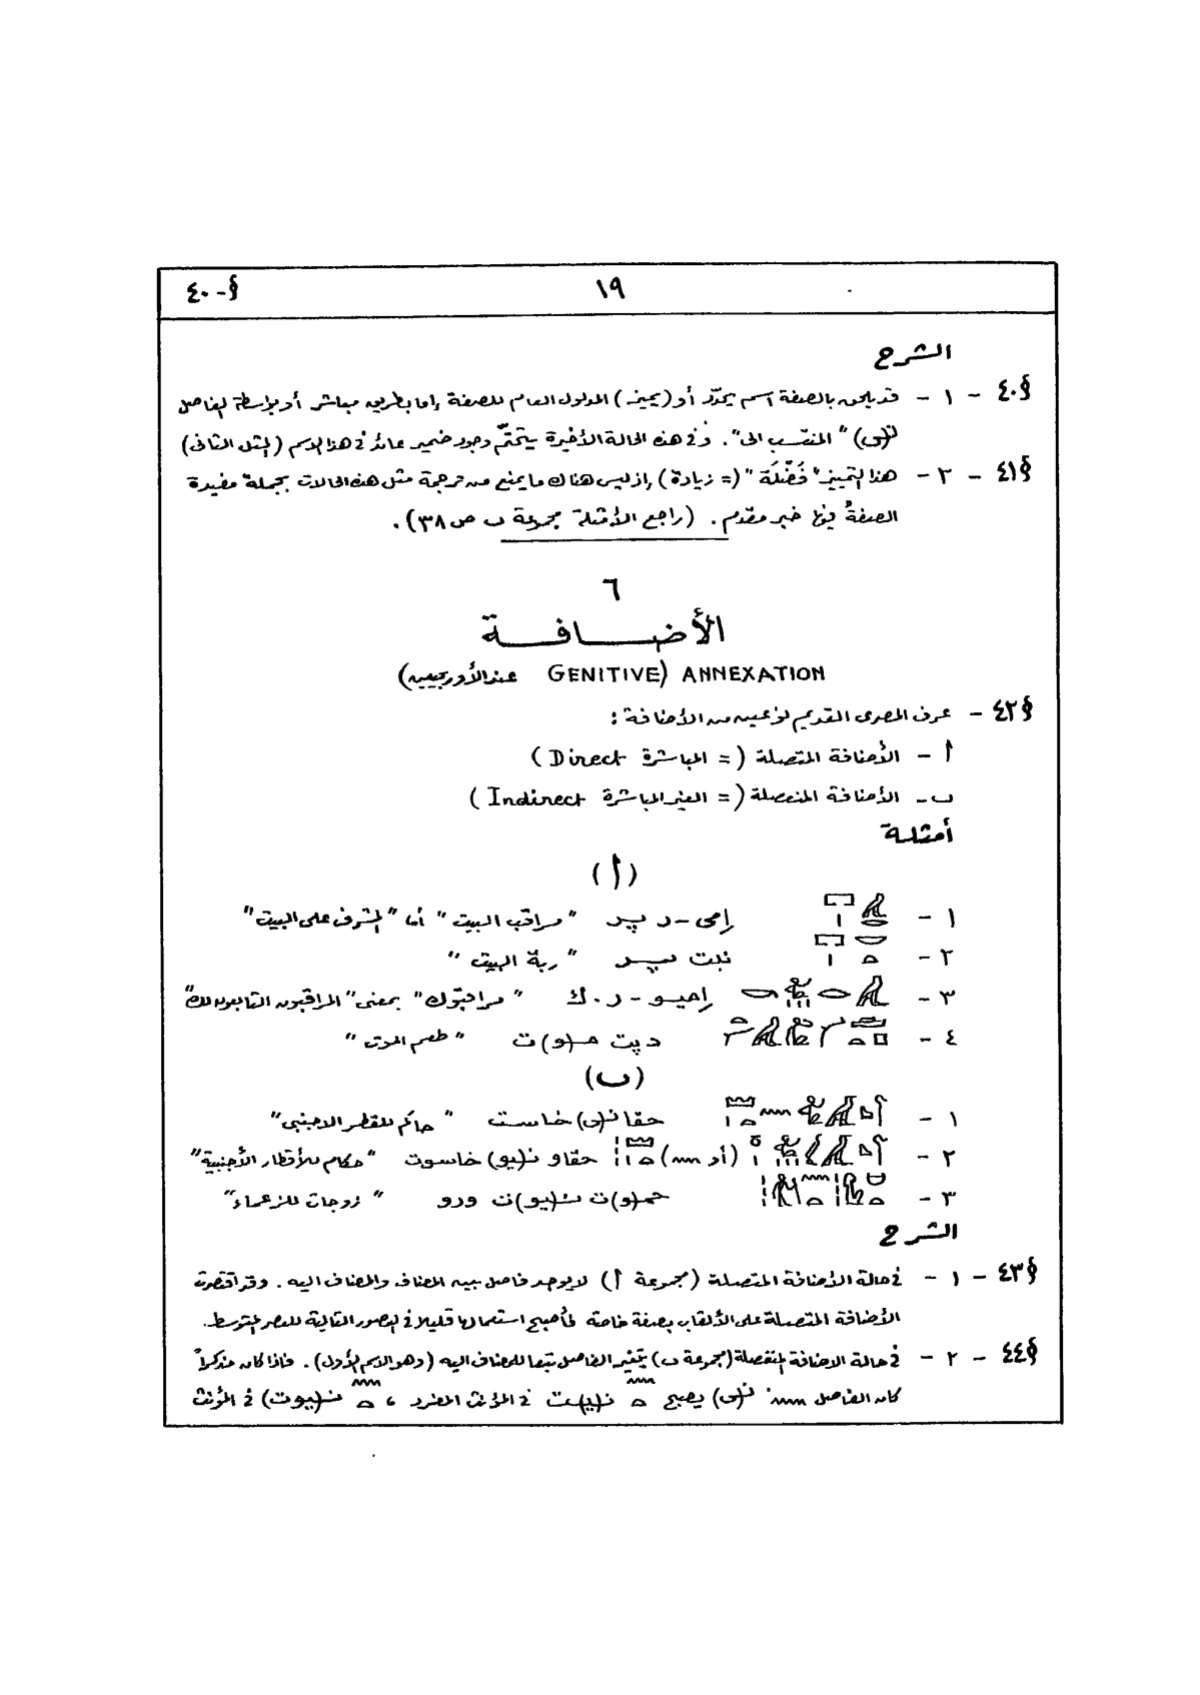 §-٤٠ ١٩
الشرح
§٤٠ - ١ - قد يلحق بالصفة اسم يحدّد أو (يميز) المدلول العام للصفة إما بطريق مباشر أو بواسطة الفاصل
ن(ى) " المنتسب الى". وفى هذه الحالة الأخيرة يتحتّم وجود ضمير عائد فى هذا الاسم (المثل الثانى)
§٤١ - ٢ - هذا التمييز "فَضْلَة" (= زيادة) إذ ليس هناك ما يمنع من ترجمة مثل هذه الحالات بجملة مفيدة
الصفةُ فيها خبر مقدم. (راجع الأمثلة مجموعة ب ص ٣٨).
٦
الأضافة
ANNEXATION (GENITIVE عند الأوربيين)
§٤٢ - عرف المصرى القديم نوعين من الأضافة :
أ - الأضافة المتصلة (= المباشرة Direct)
ب - الأضافة المنفصلة (= الغير المباشرة Indirect)
أمثلة
(أ)
١ - إمى-ر پر " مراقب البيت " أما " المشرف على البيت "
٢ - نبت پر " ربة البيت "
٣ - إميو-ر.ك " مراقبوك " بمعنى " المراقبون التابعون لك "
٤ - دپت م(و)ت " طعم الموت "
(ب)
١ - حقا ن(ى) خاست " حاكم للقطر الاجنبى "
٢ - (أو) حقاو ن(يو) خاسوت " حكام للأقطار الأجنبية "
٣ - حم(و)ت ن(يو)ت ورو " زوجات للزعماء "
الشرح
§٤٣ - ١ - فى حالة الأضافة المتصلة (مجموعة أ) لا يوجد فاصل بين المضاف والمضاف اليه. وقد اقتصرت
الأضافة المتصلة على الألقاب بصفة خاصة فأصبح استعمالها قليلا فى العصور التالية للعصر المتوسط.
§٤٤ - ٢ - فى حالة الاضافة المنفصلة (مجموعة ب) يتغير الفاصل تبعا للمضاف اليه (وهو الاسم الأول). فاذا كان مذكراً
كان الفاصل ن(ى) يصبح ن(ي)ت فى المؤنث المفرد ، ن(يوت) فى المؤنث